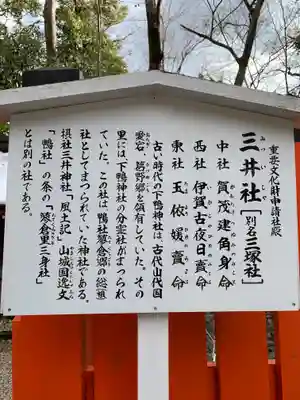 重要文化財申請社殿
三井社［別名三塚社］
中社 賀茂建角身命
西社 伊賀古夜日賣命
東社 玉依媛賣命
古い時代の下鴨神社は、古代山代国
愛宕、葛野郷を領有していた。その
里には下鴨神社の分霊社がまつられ
ていた。この社は鴨社蓼倉郷の総
社としてまつられていた神社である。
摂社三井神社「風土記」山城国逸文
「鴨社」の条の「蓼倉里三身社」
とは別の社である。